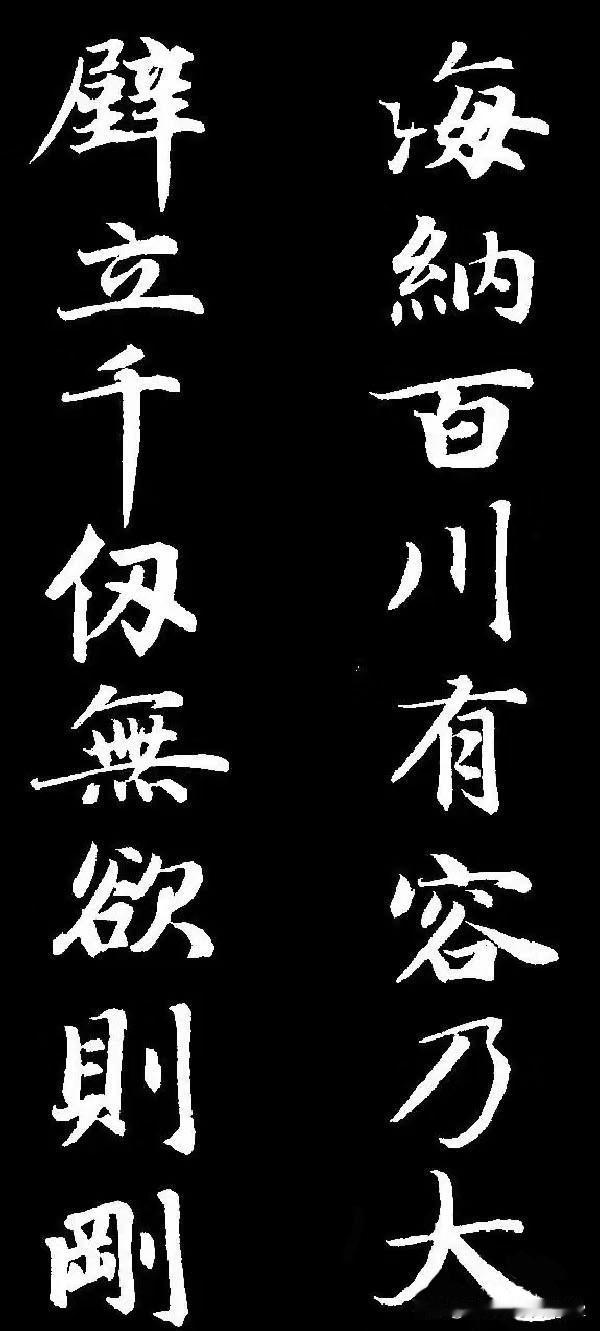 海納百川有容乃大
壁立千仭無欲則剛